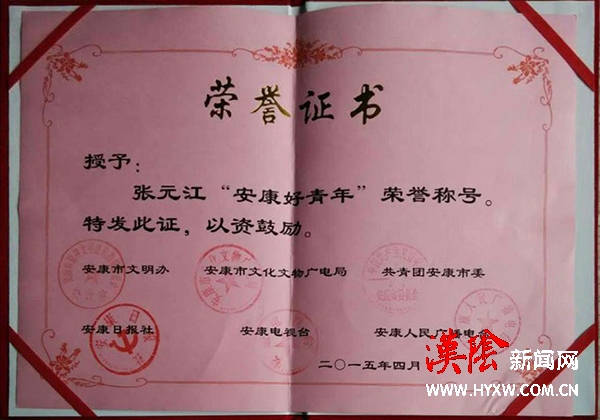 荣誉证书
授予：
张元江“安康好青年”荣誉称号。
特发此证，以资鼓励。
安康市文明办 安康市文化文物广电局 共青团安康市委
安康日报社 安康电视台 安康人民广播电台
二〇一五年四月
汉阴新闻网
WWW.HYXW.COM.CN